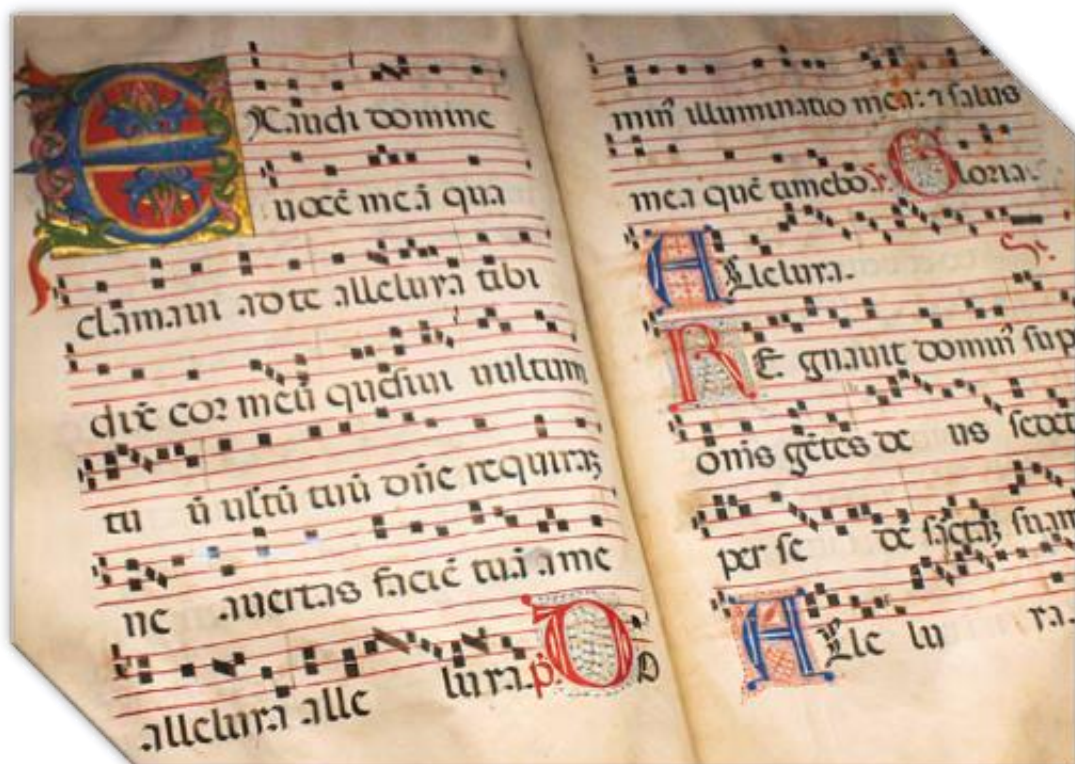 EXaudi domine
uocē meā qua
clamaui ad te alleluya tibi
dix̄ cor meū quesiui uultum
tu ū ultū tuū dn̄e requirāꝫ
ne auertas faciē tuā a me
alleluya alle luya. p̄. D D
minꝰ illuminatio mea: ⁊ salus
mea quē timebo. Gloria.
ALleluya.
RE gnauit dominꝰ sup
onis gētes de us sedet
per se dē sāctaꝫ suam
ALle lu ya.